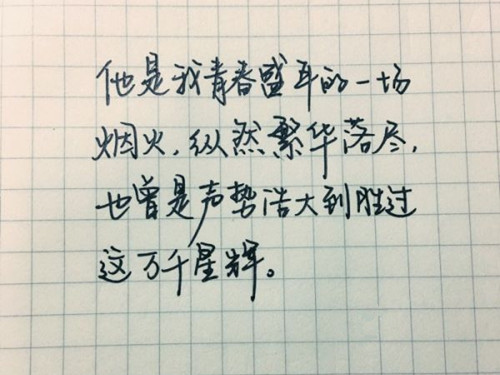 他是我青春盛年的一场
烟火，纵然繁华落尽，
也曾是声势浩大到胜过
这万千星辉。